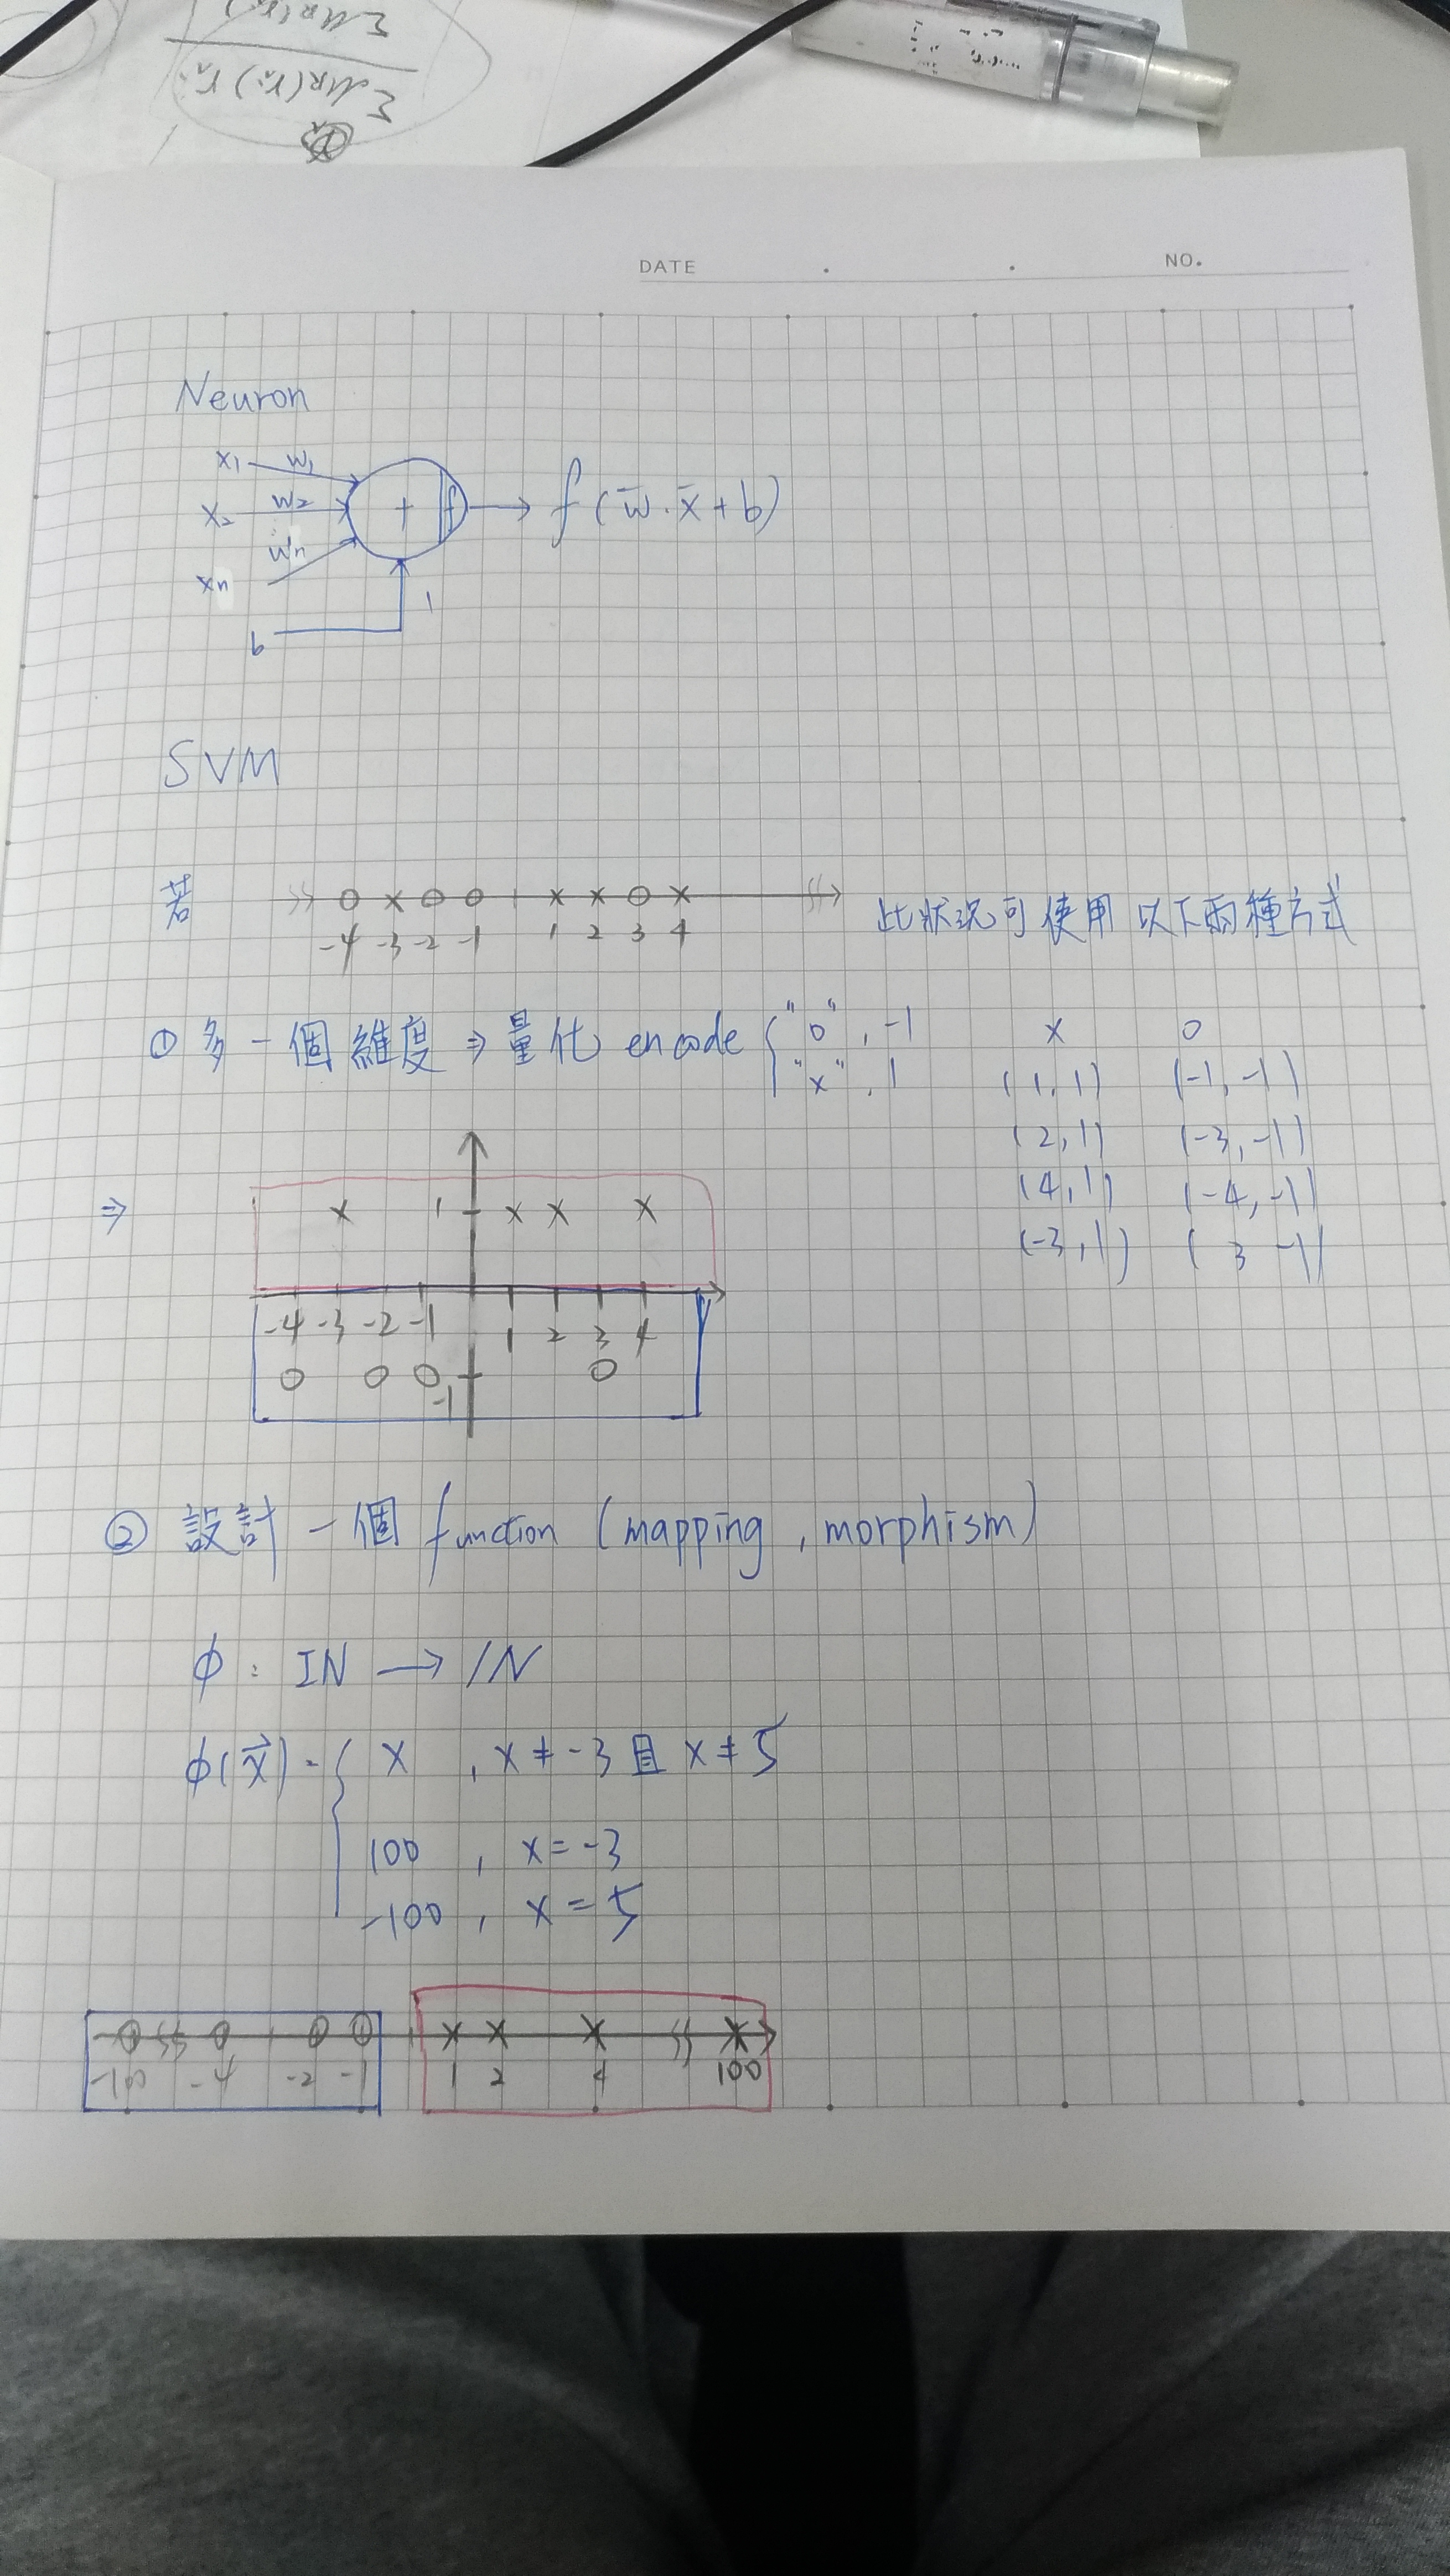 ΣμR(ri) ri
ΣμR(ri)
DATE . . NO.
Neuron
x1 w1
x2 w2 + f → f(w̄·x̄+b)
wn
xn
1
b
SVM
若 o x o o x x o x 此狀況可使用以下兩種方式
-4 -3 -2 -1 1 2 3 4
① 多一個維度 ⇒ 量化 encode { "o", -1 x o
"x", 1 (1,1) (-1,-1)
(2,1) (-3,-1)
(4,1) (-4,-1)
(-3,1) (3 -1)
⇒ x 1 x x x
-4 -3 -2 -1 1 2 3 4
o o o -1 o
② 設計一個 function (mapping, morphism)
φ: IN → IN
φ(x⃗) = { x , x ≠ -3 且 x ≠ 5
100 , x = -3
-100 , x = 5
o o o o x x x x
-100 -4 -2 -1 1 2 4 100